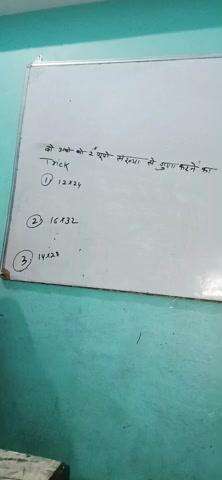 दो अंको को 2 पूर्ण संख्या से गुणा करने का
Trick
① 12×24
② 16×32
③ 14×28